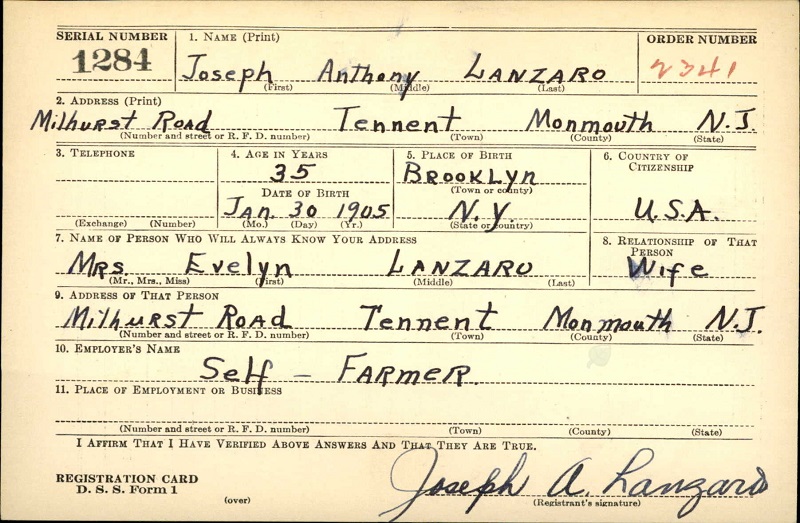 SERIAL NUMBER 1. NAME (Print) ORDER NUMBER
1284 Joseph Anthony LANZARO 2341
(First) (Middle) (Last)
2. ADDRESS (Print)
Milhurst Road Tennent Monmouth N.J.
(Number and street or R. F. D. number) (Town) (County) (State)
3. TELEPHONE 4. AGE IN YEARS 5. PLACE OF BIRTH 6. COUNTRY OF CITIZENSHIP
35 Brooklyn
DATE OF BIRTH (Town or county)
Jan. 30 1905 N.Y. U.S.A.
(Exchange) (Number) (Mo.) (Day) (Yr.) (State or country)
7. NAME OF PERSON WHO WILL ALWAYS KNOW YOUR ADDRESS 8. RELATIONSHIP OF THAT PERSON
Mrs. Evelyn LANZARO Wife
(Mr., Mrs., Miss) (First) (Middle) (Last)
9. ADDRESS OF THAT PERSON
Milhurst Road Tennent Monmouth N.J.
(Number and street or R. F. D. number) (Town) (County) (State)
10. EMPLOYER'S NAME
Self - Farmer.
11. PLACE OF EMPLOYMENT OR BUSINESS
(Number and street or R. F. D. number) (Town) (County) (State)
I AFFIRM THAT I HAVE VERIFIED ABOVE ANSWERS AND THAT THEY ARE TRUE.
REGISTRATION CARD Joseph A. Lanzaro
D. S. S. Form 1 (over) (Registrant's signature)